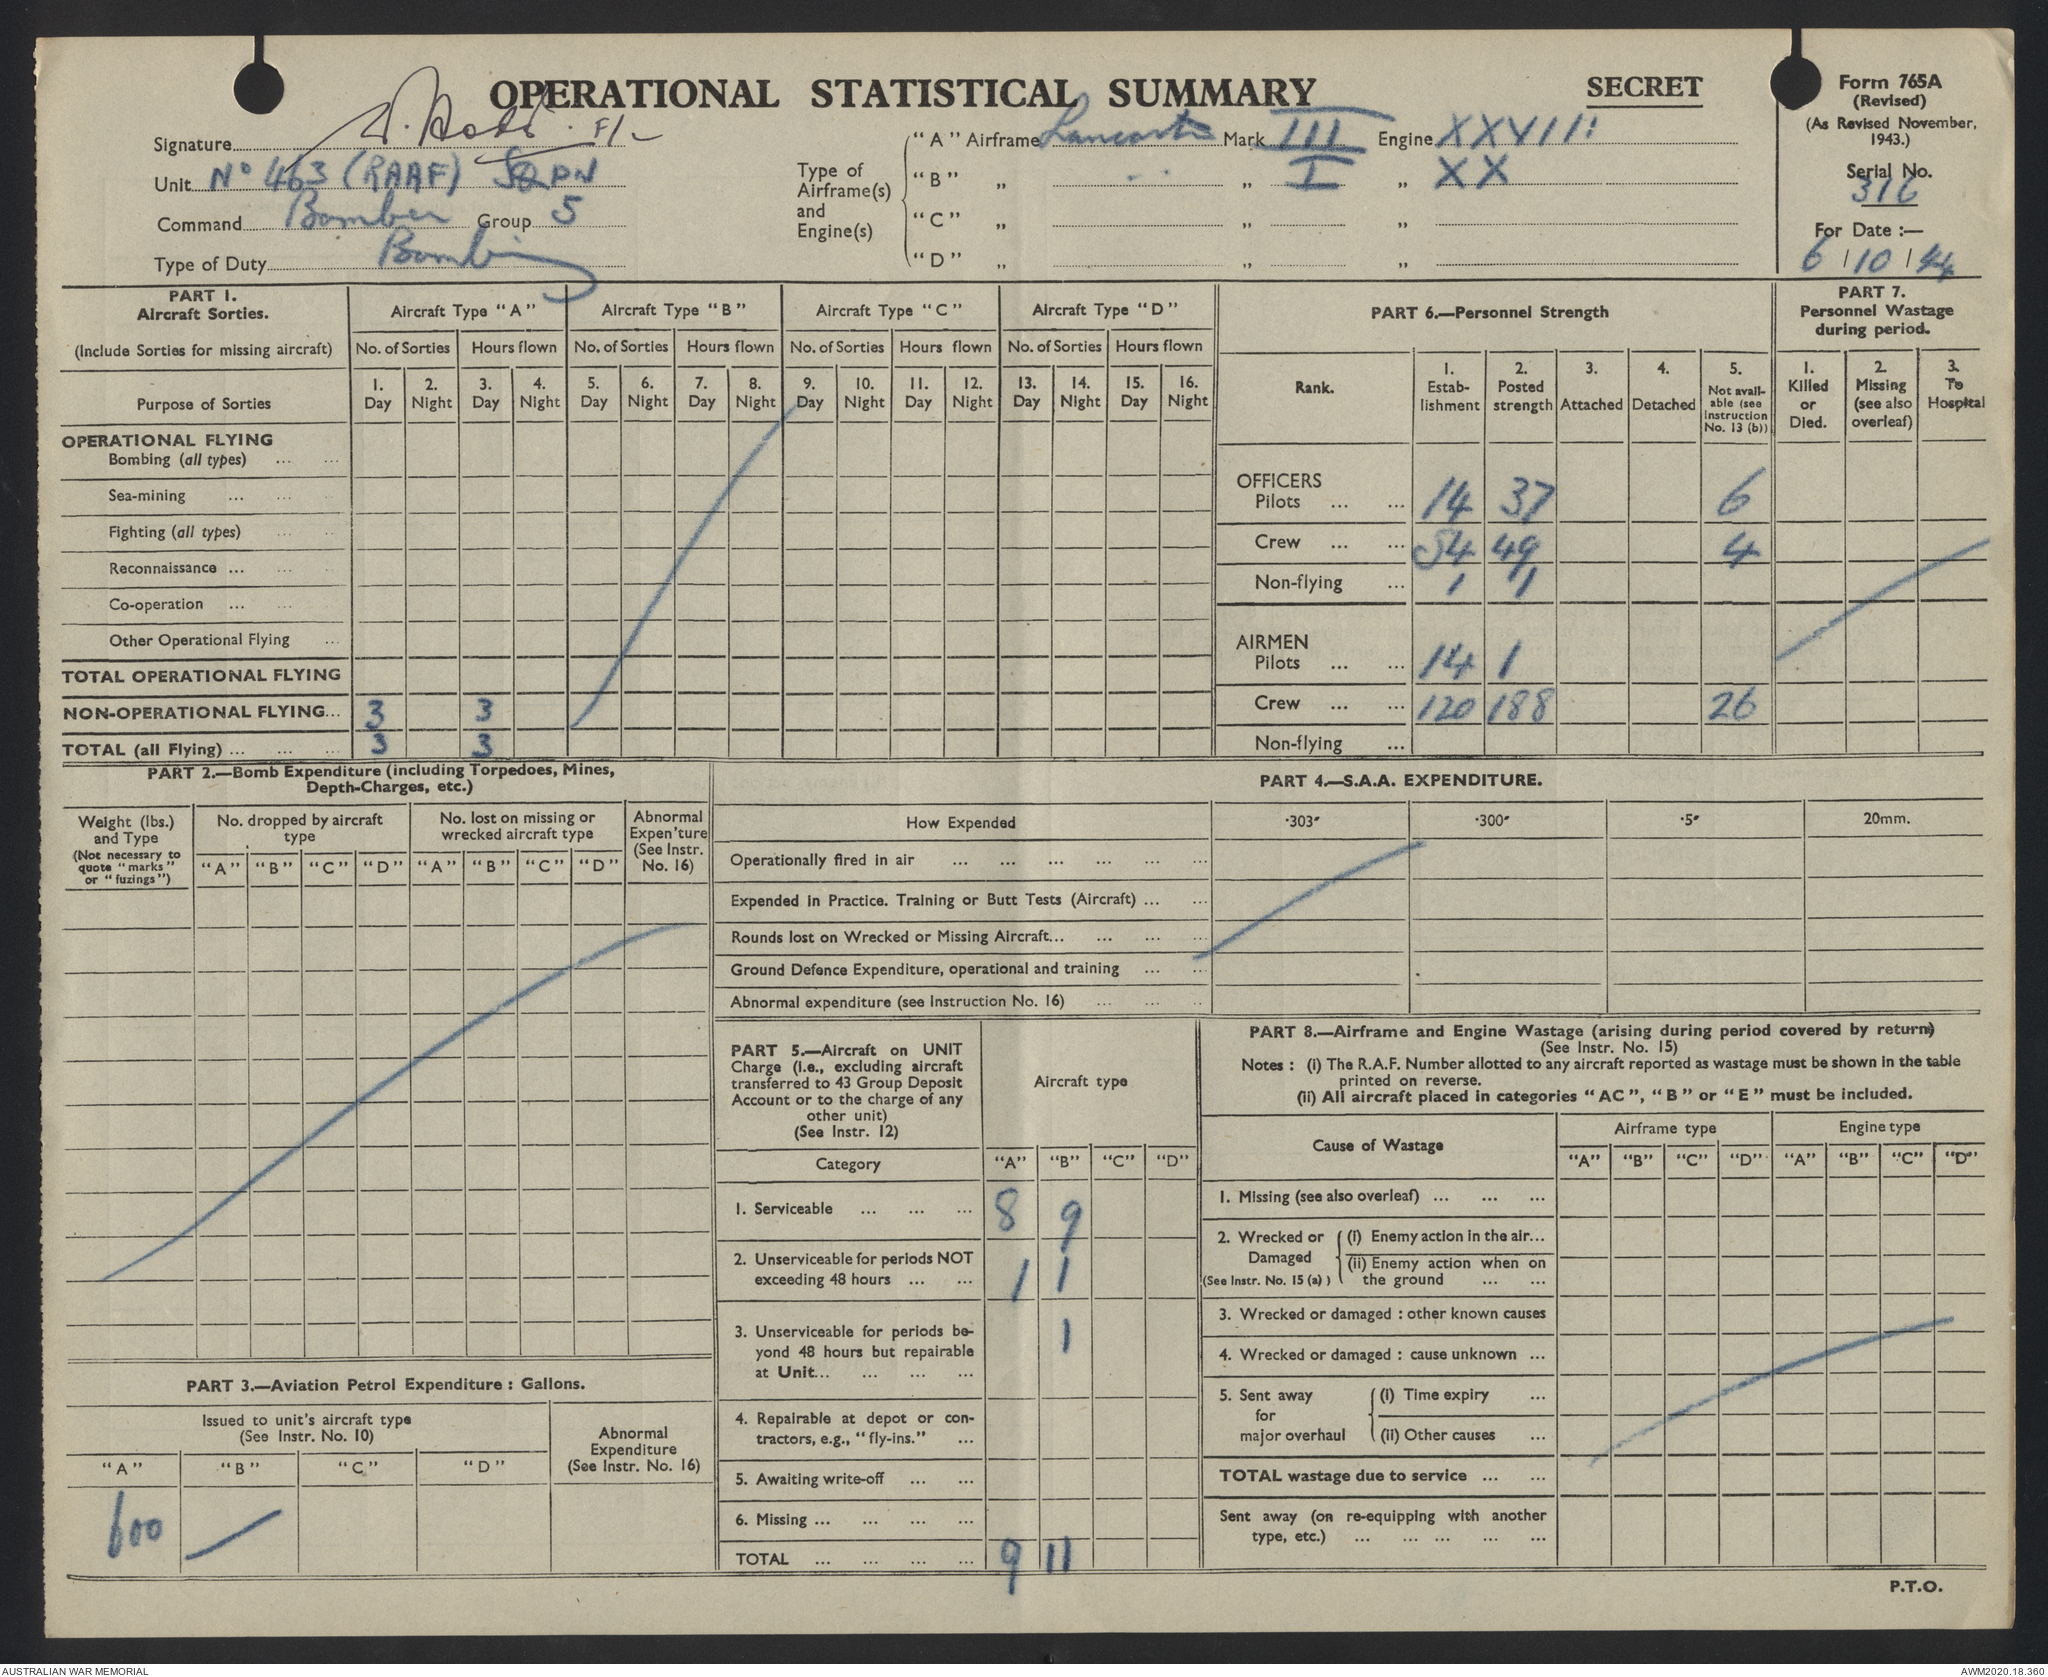 OPERATIONAL STATISTICAL SUMMARY
SECRET
Form 765A
(Revised)
(As Revised November,
1943.)
Serial No.
316
For Date :—
6 / 10 / 44
Signature F/L
Unit No 463 (RAAF) SQDN
Command Bomber Group 5
Type of Duty Bombing
Type of Airframe(s) and Engine(s)
"A" Airframe Lancaster Mark III Engine XXVIII
"B" „ .. „ I „ XX
"C" „ „ „
"D" „ „ „
PART 1.
Aircraft Sorties.
(Include Sorties for missing aircraft)
Aircraft Type "A" Aircraft Type "B" Aircraft Type "C" Aircraft Type "D"
No. of Sorties Hours flown No. of Sorties Hours flown No. of Sorties Hours flown No. of Sorties Hours flown
1. 2. 3. 4. 5. 6. 7. 8. 9. 10. 11. 12. 13. 14. 15. 16.
Purpose of Sorties Day Night Day Night Day Night Day Night Day Night Day Night Day Night Day Night
OPERATIONAL FLYING
Bombing (all types) ... ...
Sea-mining ... ... ...
Fighting (all types) ... ...
Reconnaissance ... ... ...
Co-operation ... ... ...
Other Operational Flying ...
TOTAL OPERATIONAL FLYING
NON-OPERATIONAL FLYING... 3 3
TOTAL (all Flying) ... ... ... 3 3
PART 6.—Personnel Strength
Rank.
1. Estab-lishment
2. Posted strength
3. Attached
4. Detached
5. Not avail-able (see Instruction No. 13 (b))
OFFICERS
Pilots ... ... 14 37 6
Crew ... ... 54 49 4
Non-flying ... 1 1
AIRMEN
Pilots ... ... 14 1
Crew ... ... 120 188 26
Non-flying ...
PART 7.
Personnel Wastage
during period.
1. Killed or Died.
2. Missing (see also overleaf)
3. To Hospital
PART 2.—Bomb Expenditure (including Torpedoes, Mines,
Depth-Charges, etc.)
Weight (lbs.)
and Type
(Not necessary to
quote "marks"
or "fuzings")
No. dropped by aircraft
type
No. lost on missing or
wrecked aircraft type
Abnormal
Expen'ture
(See Instr.
No. 16)
"A" "B" "C" "D" "A" "B" "C" "D"
PART 3.—Aviation Petrol Expenditure : Gallons.
Issued to unit's aircraft type
(See Instr. No. 10)
Abnormal
Expenditure
(See Instr. No. 16)
"A" "B" "C" "D"
600
PART 4.—S.A.A. EXPENDITURE.
How Expended ·303" ·300" ·5" 20mm.
Operationally fired in air ... ... ... ... ... ...
Expended in Practice. Training or Butt Tests (Aircraft) ... ...
Rounds lost on Wrecked or Missing Aircraft... ... ... ...
Ground Defence Expenditure, operational and training ... ...
Abnormal expenditure (see Instruction No. 16) ... ... ...
PART 5.—Aircraft on UNIT
Charge (i.e., excluding aircraft
transferred to 43 Group Deposit
Account or to the charge of any
other unit)
(See Instr. 12)
Aircraft type
Category "A" "B" "C" "D"
1. Serviceable ... ... ... 8 9
2. Unserviceable for periods NOT
exceeding 48 hours ... ... 1 1
3. Unserviceable for periods be-
yond 48 hours but repairable
at Unit... ... ... ... 1
4. Repairable at depot or con-
tractors, e.g., "fly-ins." ...
5. Awaiting write-off ... ...
6. Missing ... ... ... ...
TOTAL ... ... ... ... 9 11
PART 8.—Airframe and Engine Wastage (arising during period covered by return)
(See Instr. No. 15)
Notes : (i) The R.A.F. Number allotted to any aircraft reported as wastage must be shown in the table
printed on reverse.
(ii) All aircraft placed in categories "AC", "B" or "E" must be included.
Cause of Wastage
Airframe type Engine type
"A" "B" "C" "D" "A" "B" "C" "D"
1. Missing (see also overleaf) ... ... ...
2. Wrecked or Damaged (See Instr. No. 15 (a) )
(i) Enemy action in the air...
(ii) Enemy action when on
the ground ... ...
3. Wrecked or damaged : other known causes
4. Wrecked or damaged : cause unknown ...
5. Sent away for major overhaul
(i) Time expiry ...
(ii) Other causes ...
TOTAL wastage due to service ... ...
Sent away (on re-equipping with another
type, etc.) ... ... ... ... ...
P.T.O.
AUSTRALIAN WAR MEMORIAL
AWM2020.18.360